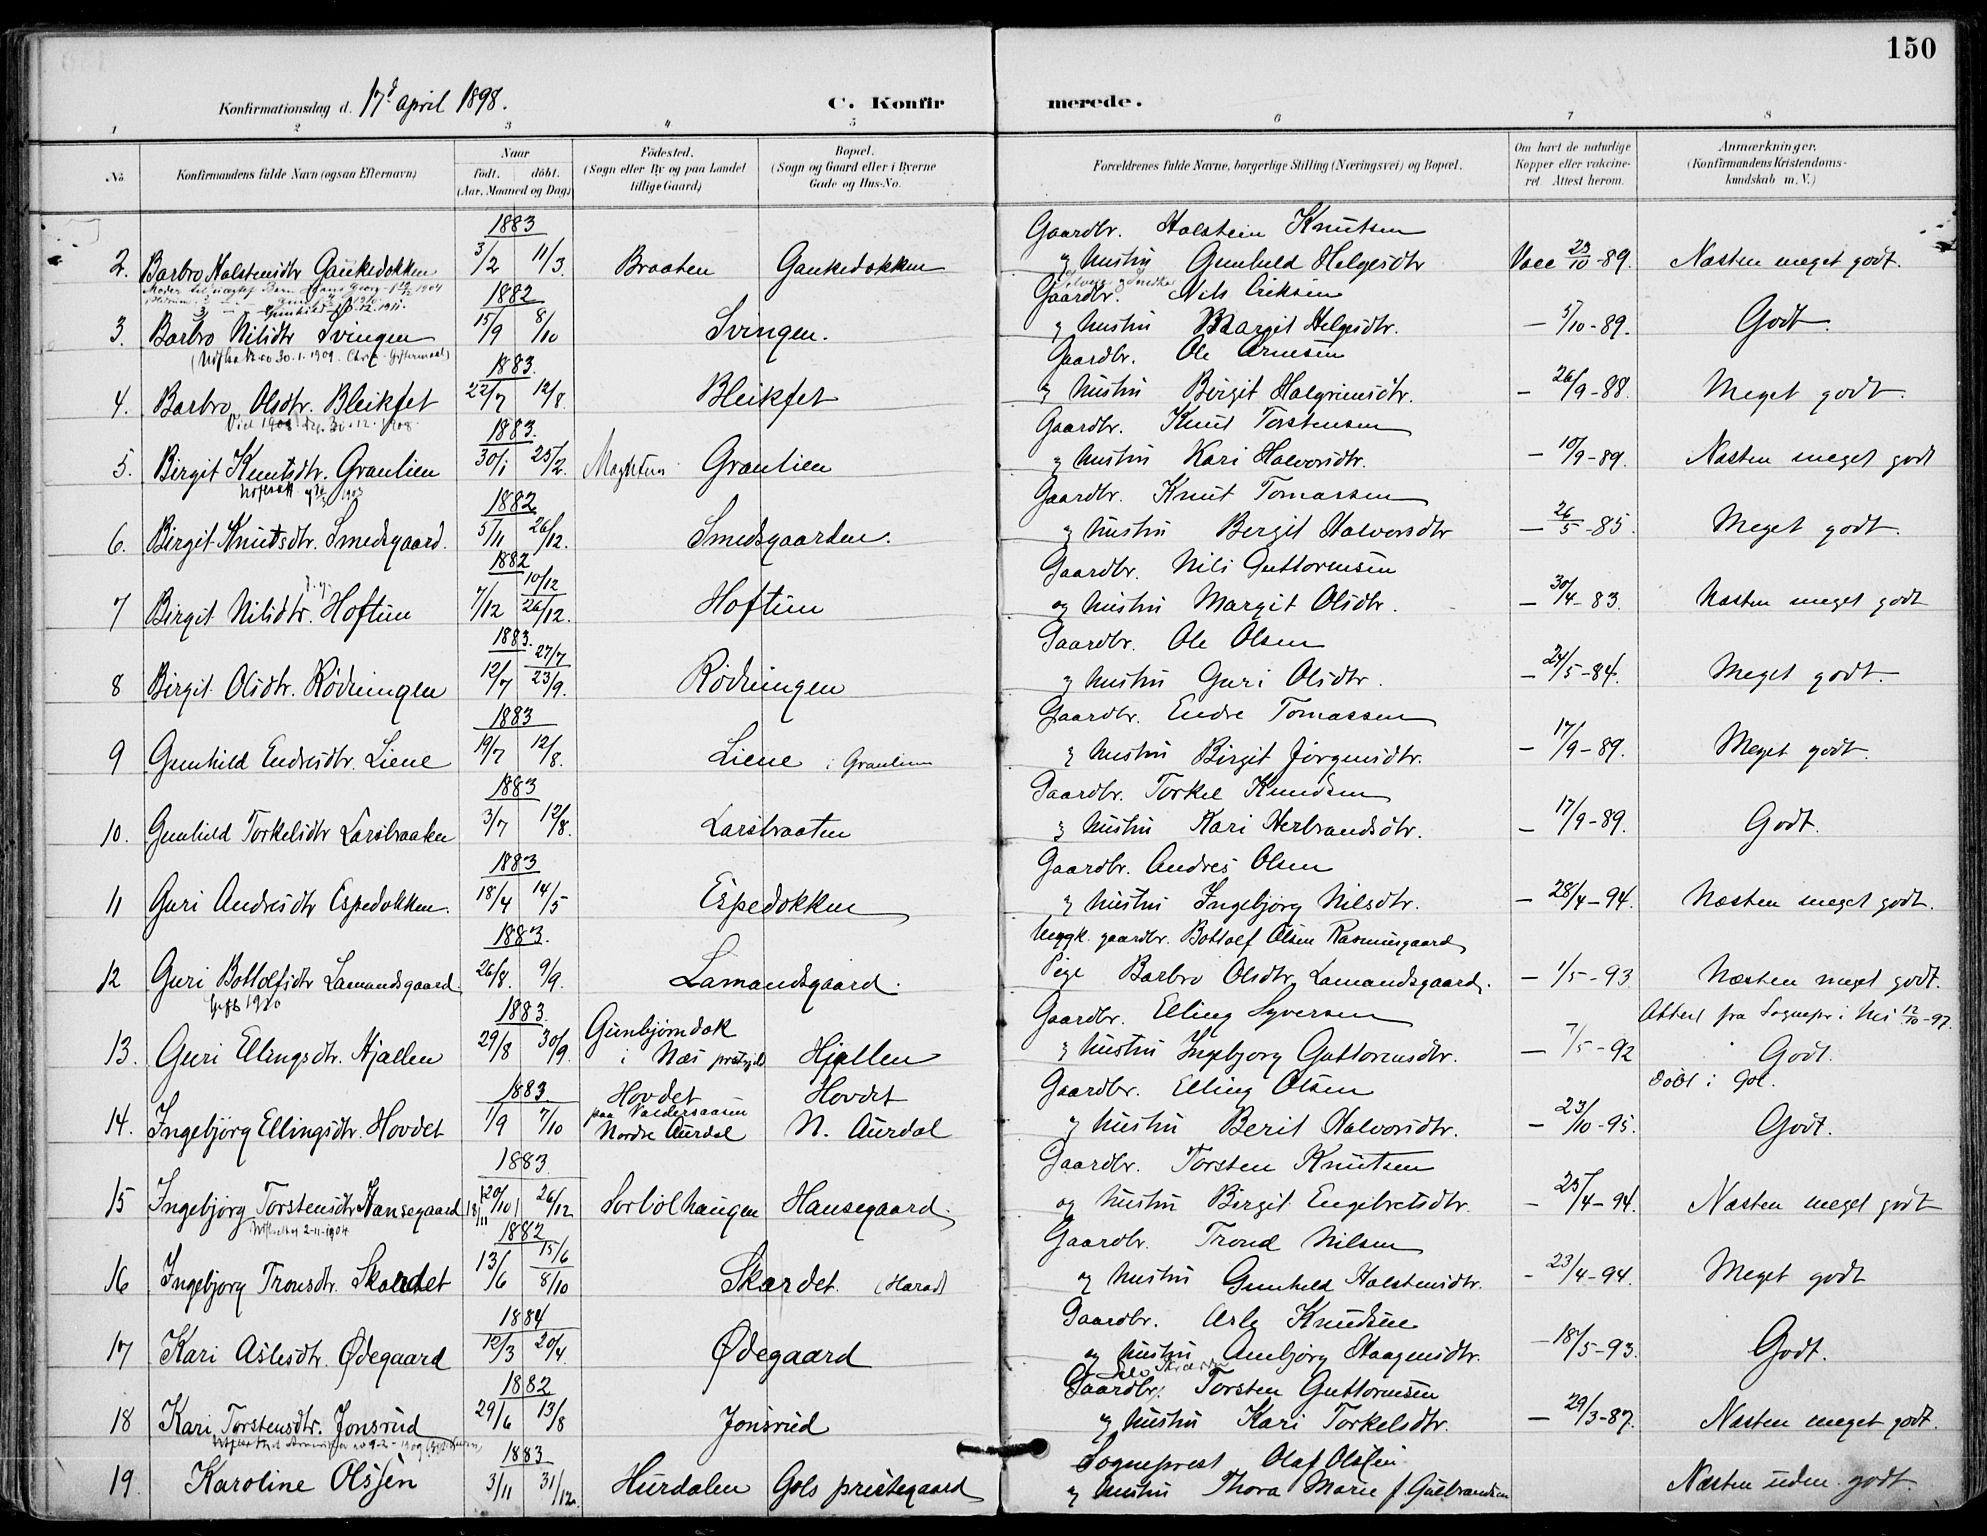 150
Konfirmationsdag d. 17d april 1898.
C. Konfirmerede.
1 2 3 4 5 6 7 8
No. Konfirmandens fulde Navn (ogsaa Efternavn) Naar født. døbt. (Aar, Maaned og Dag) Fødested. (Sogn eller By og paa Landet tillige Gaard) Bopæl. (Sogn og Gaard eller i Byerne Gade og Hus-No. Forældrenes fulde Navne, borgerlige Stilling (Næringsvei) og Bopæl. Om havt de naturlige Kopper eller vakcineret. Attest herom. Anmærkninger. (Konfirmandens Kristendomskundskab m. V.)
1883 Gaardbr. Halstein Knutsen
2. Barbro Halstensdtr Gaukedokken 3/2 11/3. Braaten Gaukedokken og hustru Gunhild Helgesdtr Vacc 23/10 -89. Næsten meget godt.
1882 Gaardbr. Nils Eriksen
3. Barbro Nilsdtr Svingen 15/9 8/10 Svingen. og hustru Margit Helgesdtr. — 5/10 -89. Godt.
1883. Gaardbr. Ole Arnesen
4. Barbro Olsdtr. Bleikfet 22/7 12/8. Bleikfet og hustru Birgit Halgrimsdtr. — 26/9 -88. Meget godt.
1883. Gaardbr. Knut Torstensen
5. Birgit Knutsdtr. Granlien 30/1 25/2. Granlien og hustru Kari Halvorsdtr. — 10/9 -89. Næsten meget godt
1882 Gaardbr. Knut Tomassen
6. Birgit Knutsdtr. Smedsgaard. 5/11 26/12. Smedsgaarden. og hustru Bergit Halvorsdtr — 26/5 -85. Meget godt.
1882 Gaardbr. Nils Guttormsen
7 Birgit Nilsdtr. Hoftun 7/12 10/12 26/12. Hoftun og hustru Margit Olsdtr. — 30/4 -83. Næsten meget godt
1883. Gaardbr. Ole Olsen
8 Birgit Olsdtr. Rødningen 12/7 27/7 23/9. Rødningen og hustru Guri Olsdtr. — 24/5 -84. Meget godt.
1883 Gaardbr. Endre Tomassen
9 Gunhild Endresdtr. Liene 19/7 12/8. Liene i Granlien og hustru Birgit Jørgensdtr. — 17/9 -89. Meget godt.
1883 Gaardbr. Torkel Knudsen
10. Gunhild Torkelsdtr Larsbraaten 3/7 12/8. Larsbraaten og hustru Kari Herbrandsdtr. — 17/9 -89. Godt.
1883 Gaardbr. Andres Olsen
11 Guri Andresdtr Espedokken. 18/4 14/5 Espedokken og hustru Ingebjørg Nilsdtr. — 28/4 -94. Næsten meget godt.
1883. Ungk. gaardbr. Bottolf Olsen Rasmusgaard
12 Guri Bottolfsdtr Lamandsgaard 26/8. 9/9. Lamandsgaard. Pige Barbro Olsdtr. Lamandsgaard. — 1/5 -93 Næsten meget godt.
gift 1920
1883. Gaardbr. Elling Syversen Attest fra Sognepr i Nes 12/10 -97.
13. Guri Ellingsdtr. Hjallen 29/8 30/9. Gunbjørndok i Næs prstgjld Hjallen og hustru Ingebjørg Guttormsdtr. — 7/5 -92 Godt.
1883. Gaardbr. Elling Olsen døbt i Gol.
14. Ingebjørg Ellingsdtr. Hovdet 1/9 7/10 Hovdet paa Valdersaasen Nordre Aurdal Hovdet N. Aurdal og hustru Berit Halvorsdtr. — 23/10 -95. Godt.
1883 Gaardbr. Torsten Knutsen
15 Ingebjørg Torstensdtr Hansegaard 20/10 18/11 26/12 Sorbølhaugen Hansegaard. og hustru Birgit Engebretsdtr. — 25/4 -94. Næsten meget godt
1882 Gaardbr. Trond Nilsen
16 Ingebjørg Tronsdtr. Skardet 13/6 15/6 8/10 Skardet. og hustru Gunhild Halstensdtr. - 23/4 -94. Meget godt
1884 Gaardbr. Asle Knudsen
17 Kari Aslesdtr. Ødegaard 12/3 20/4. Ødegaard og hustru Anbjørg Haagensdtr. — 18/5 -93. Godt.
1882 Gaardbr. Torsten Guttormsen
18 Kari Torstensdtr. Jonsrud 29/6 13/8 Jonsrud og hustru Kari Torkelsdtr. — 29/3 -87. Næsten meget godt.
1883 Sogneprest Olaf Olssen
19. Karoline Olssen 3/11 31/12. Hurdalen Gols prestegaard og hustru Thora Marie f. Gulbrandsen Næsten uden godt.